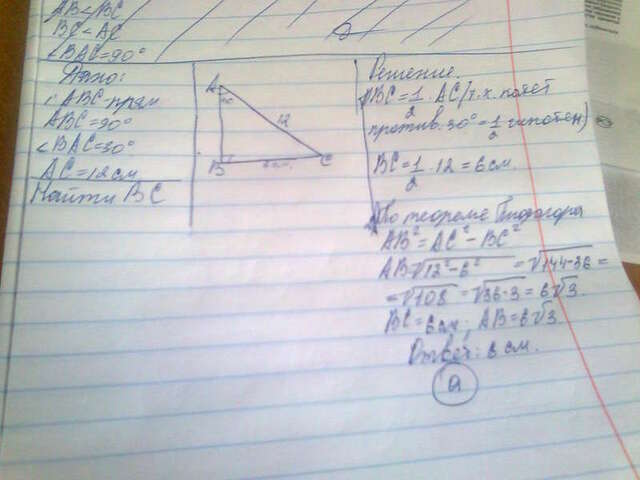 AB < BC
BC < AC
∠BAC = 90°
Дано:
ABC - прям
ABC = 90°
∠BAC = 30°
AC = 12 см
Найти BC
A
12
B
C
Решение.
1) BC = 1/2 · AC (т.к. катет
против. 30° = 1/2 гипотен)
BC = 1/2 · 12 = 6 см.
По теореме Пифагора
AB² = AC² - BC²
AB √12² - 6² = √144-36 =
= √108 = √36·3 = 6√3
BC = 6 см; AB = 6√3
Ответ: 6 см.